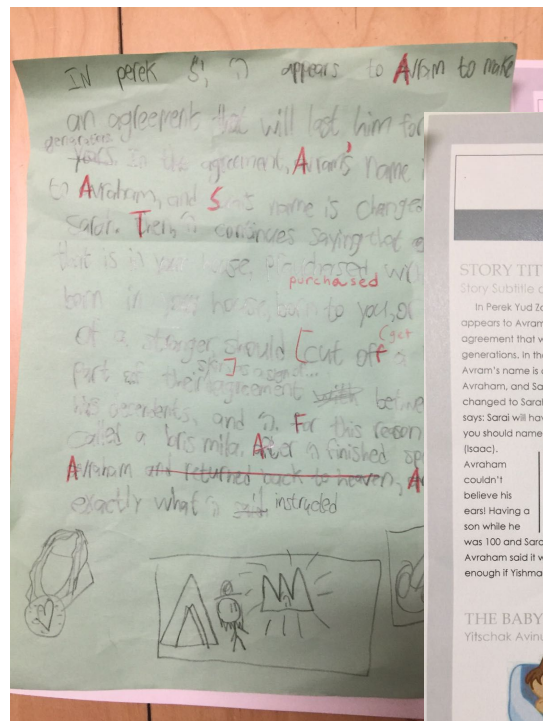 IN perek ז', ה' appears to Avram to make
an agreement that will last him for
generations
years. In the agreement, Avram's name i
to Avraham, and Sarai's name is changed
Sarah. Then, ה' continues saying that e
that is in your house. Purchased, wi
purchased
born in your house, born to you, or
of a stranger should [cut off a
(get
part of their skin] as a sign of...
agreement with between
his decendents, and ה'. For this reason
called a bris mila. After ה' finished sp
Avraham and returned back to heaven, A
exactly what ה' said instructed
STORY TIT
Story Subtitle o
In Perek Yud Za
appears to Avram
agreement that w
generations. In the
Avram's name is c
Avraham, and Sa
changed to Sarah
says: Sarai will hav
you should name
(Isaac).
Avraham
couldn't
believe his
ears! Having a
son while he
was 100 and Sara
Avraham said it w
enough if Yishma
THE BABY
Yitschak Avinu